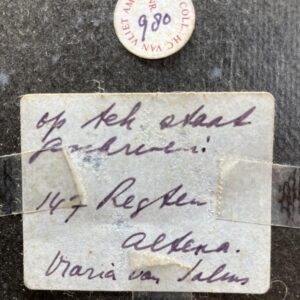 COLL. H.C. VAN VLIET AM
NR.
980
op tek staat
geschreven:
147 Regten
Altena.
Maria van Solms